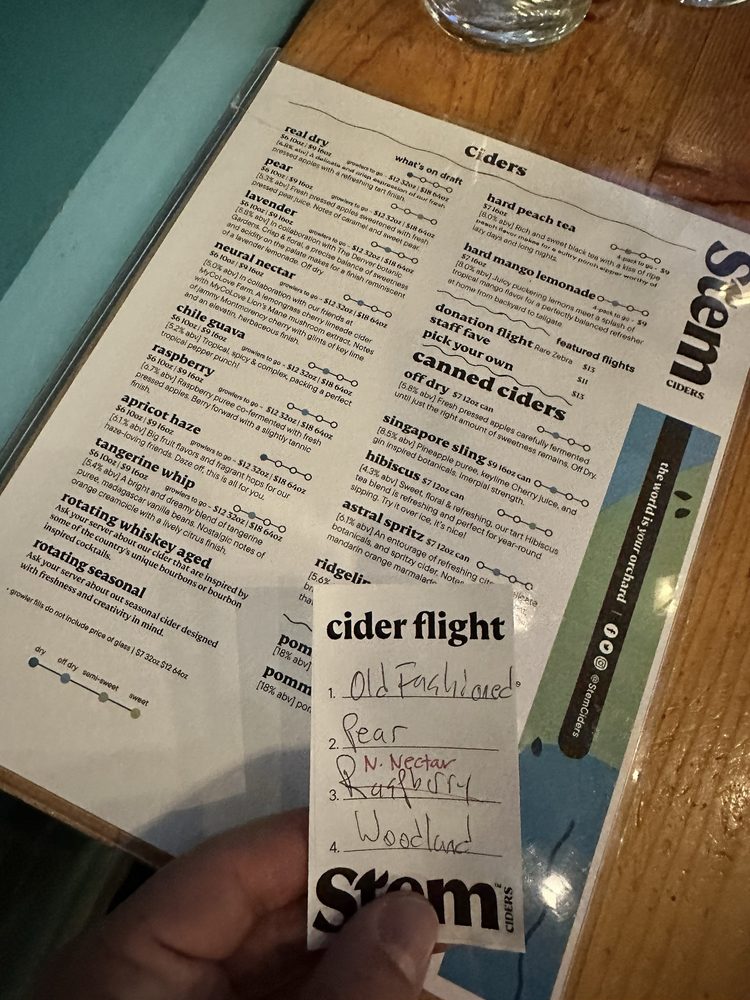 Ciders
what's on draft
real dry
$6 10oz | $9 16oz
growlers to go - $12 32oz | $18 64oz
[6.8% abv] A delicate and crisp expression of our fresh
pressed apples with a refreshing tart finish.
pear
$6 10oz | $9 16oz
growlers to go - $12 32oz | $18 64oz
[5.3% abv] Fresh pressed apples sweetened with fresh
pressed pear juice. Notes of caramel and sweet pear.
lavender
$6 10oz | $9 16oz
growlers to go - $12 32oz | $18 64oz
[5.8% abv] In collaboration with The Denver Botanic
Gardens. Crisp & floral, a precise balance of sweetness
and acidity on the palate makes for a finish reminiscent
of a lavender lemonade. Off dry.
neural nectar
$6 10oz | $9 16oz
growlers to go - $12 32oz | $18 64oz
[5.0% abv] In collaboration with our friends at
MyCoLove Farm. A lemongrass cherry limeade cider
with MyCoLove Lion's Mane mushroom extract. Notes
of jammy Montmorency cherry with glints of key lime
and an elevatin, herbaceous finish.
chile guava
$6 10oz | $9 16oz
growlers to go - $12 32oz | $18 64oz
[5.2% abv] Tropical, spicy & complex, packing a perfect
tropical pepper punch!
raspberry
$6 10oz | $9 16oz
growlers to go - $12 32oz | $18 64oz
[6.7% abv] Raspberry puree co-fermented with fresh
pressed apples. Berry forward with a slightly tannic
finish.
apricot haze
$6 10oz | $9 16oz
growlers to go - $12 32oz | $18 64oz
[6.1% abv] Big fruit flavors and fragrant hops for our
haze-loving friends. Daze off, this is all for you.
tangerine whip
$6 10oz | $9 16oz
growlers to go - $12 32oz | $18 64oz
[5.4% abv] A bright and dreamy blend of tangerine
puree, madagascar vanilla beans. Nostalgic notes of
orange creamsicle with a lively citrus finish.
rotating whiskey aged
Ask your server about our cider that are inspired by
some of the country's unique bourbons or bourbon
inspired cocktails.
rotating seasonal
Ask your server about our seasonal cider designed
with freshness and creativity in mind.
* growler fills do not include price of glass | $7 32oz $12 64oz
dry
off dry
semi-sweet
sweet
hard peach tea
$7 16oz
4 pack to go - $9
[8.0% abv] Rich and sweet black tea with a kiss of ripe
peach flavor makes for a sultry porch sipper worthy of
lazy days and long nights.
hard mango lemonade
$7 16oz
4 pack to go - $9
[8.0% abv] Juicy puckering lemons meet a splash of
tropical mango flavor for a perfectly balanced refresher
at home from backyard to tailgate.
featured flights
donation flight Rare Zebra $13
staff fave $11
pick your own $13
canned ciders
off dry $7 12oz can
[5.8% abv] Fresh pressed apples carefully fermented
until just the right amount of sweetness remains. Off Dry.
singapore sling $9 16oz can
[8.5% abv] Pineapple puree, keylime Cherry juice, and
gin inspired botanicals. Imperial strength.
hibiscus $7 12oz can
[4.3% abv] Sweet, floral & refreshing, our tart Hibiscus
tea blend is refreshing and perfect for year-round
sipping. Try it over ice, it's nice!
astral spritz $7 12oz can
[6.1% abv] An entourage of refreshing
botanicals, and spritzy cider. Notes
mandarin orange marmalade
ridgelin
[5.6%
pom
[18% abv]
pomm
[18% abv]
Stem
CIDERS
the world is your orchard | @StemCiders
cider flight
1. Old Fashioned
2. Pear
N. Nectar
3. Raspberry
4. Woodland
Stem
CIDERS